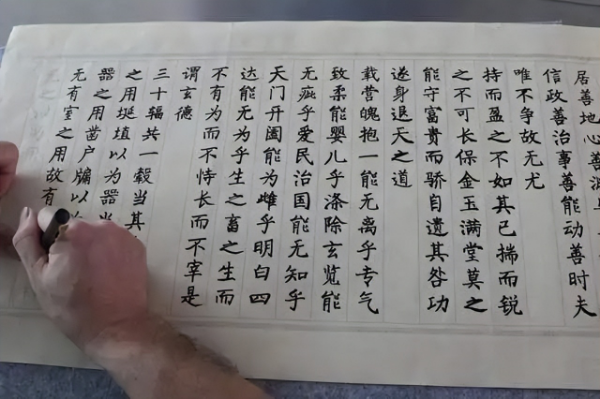 居善地心善渊与
信政善治事善能动善时夫
唯不争故无尤
持而盈之不如其已揣而锐
之不可长保金玉满堂莫之
能守富贵而骄自遗其咎功
遂身退天之道
载营魄抱一能无离乎专气
致柔能婴儿乎涤除玄览能
无疵乎爱民治国能无知乎
天门开阖能为雌乎明白四
达能无为乎生之畜之生而
不有为而不恃长而不宰是
谓玄德
三十辐共一毂当其
之用埏埴以为器当
器之用凿户牖以
无有室之用故有